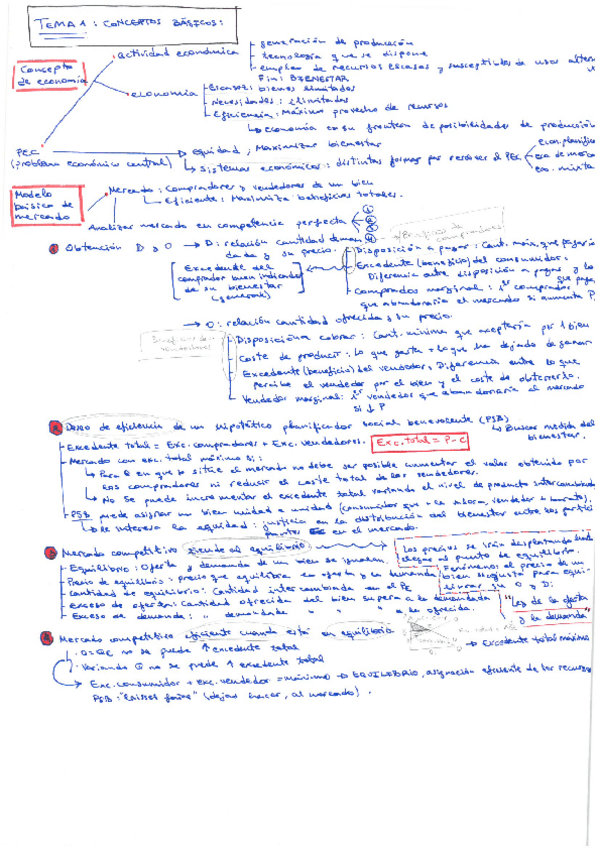 TEMA 1: CONCEPTOS BÁSICOS:
Concepto de economía
actividad económica
generación de producción
tecnología que se dispone
empleo de recursos escasos y susceptibles de usos altern
Fin: BIENESTAR
economía
Escasez: bienes limitados
Necesidades: ilimitadas
Eficiencia: Máximo provecho de recursos
↳ economía en su frontera de posibilidades de producción
PEC
(problema económico central)
Equidad, Maximizar bienestar
↳ sistemas económicos: distintas formas par resolver el PEC
econ. planific
eco. de merca
eco. mixta
Modelo básico de mercado
Mercado: Compradores y vendedores de un bien
↳ Eficiente: Maximiza beneficios totales.
Analizar mercado en competencia perfecta
① Obtención D y O → D: relación cantidad deman-
dada y su precio.
Disposición a pagar: Cant. máx. que pagaría
Excedente (beneficio) del consumidor:
Diferencia entre disposición a pagar y lo que paga
Comprador marginal: 1er comprador
que abandonaría el mercado si aumenta P
Excedente del
comprador buen indicador
de su bienestar
(general)
→ O: relación cantidad ofrecida y su precio.
Disposición a cobrar: Cant. mínima que aceptaría por 1 bien
Coste de producir: Lo que gasta + lo que ha dejado de ganar
Excedente (beneficio) del vendedor: Diferencia entre lo que
percibe el vendedor por el bien y el coste de obtenerlo.
Vendedor marginal: 1er vendedor que abandonaría el mercado
si ↓ P
② Deseo de eficiencia de un hipotético planificador social benevolente (PSB)
↳ Buscar medida del bienestar.
Excedente total = Exc. compradores + Exc. vendedores.
Exc. total = P - C
Mercado con exc. total máximo si:
Para Q en que lo sitúe el mercado no debe ser posible aumentar el valor obtenido por
los compradores ni reducir el coste total de los vendedores.
↳ No se puede incrementar el excedente total variando el nivel de producto intercambiado
PSB puede asignar un bien unidad a unidad (consumidor que + la valora, vendedor + barato).
↳ Le interesa la equidad: justicia en la distribución del bienestar entre los partici-
pantes en el mercado.
③ Mercado competitivo tiende al equilibrio
Equilibrio: Oferta y demanda de un bien se igualan.
Precio de equilibrio: precio que equilibra la oferta y la demanda
Cantidad de equilibrio: Cantidad intercambiada en el PE
Exceso de oferta: Cantidad ofrecida del bien supera a la demandada
Exceso de demanda: " demandada " " " a la ofrecida.
Los precios se irán desplazando hasta
llegar al punto de equilibrio.
Fenómeno: el precio de un
bien se ajusta para equi-
librar su O y D:
"Ley de la oferta
y la demanda"
④ Mercado competitivo eficiente cuando está en equilibrio
→ Excedente total máximo
Q=QE no se puede ↑ excedente total
Variando Q no se puede ↑ excedente total
Exc. consumidor + exc. vendedor = máximo → EQUILIBRIO, asignación eficiente de los recursos
PSB: "Laissez faire" (dejar hacer, al mercado).